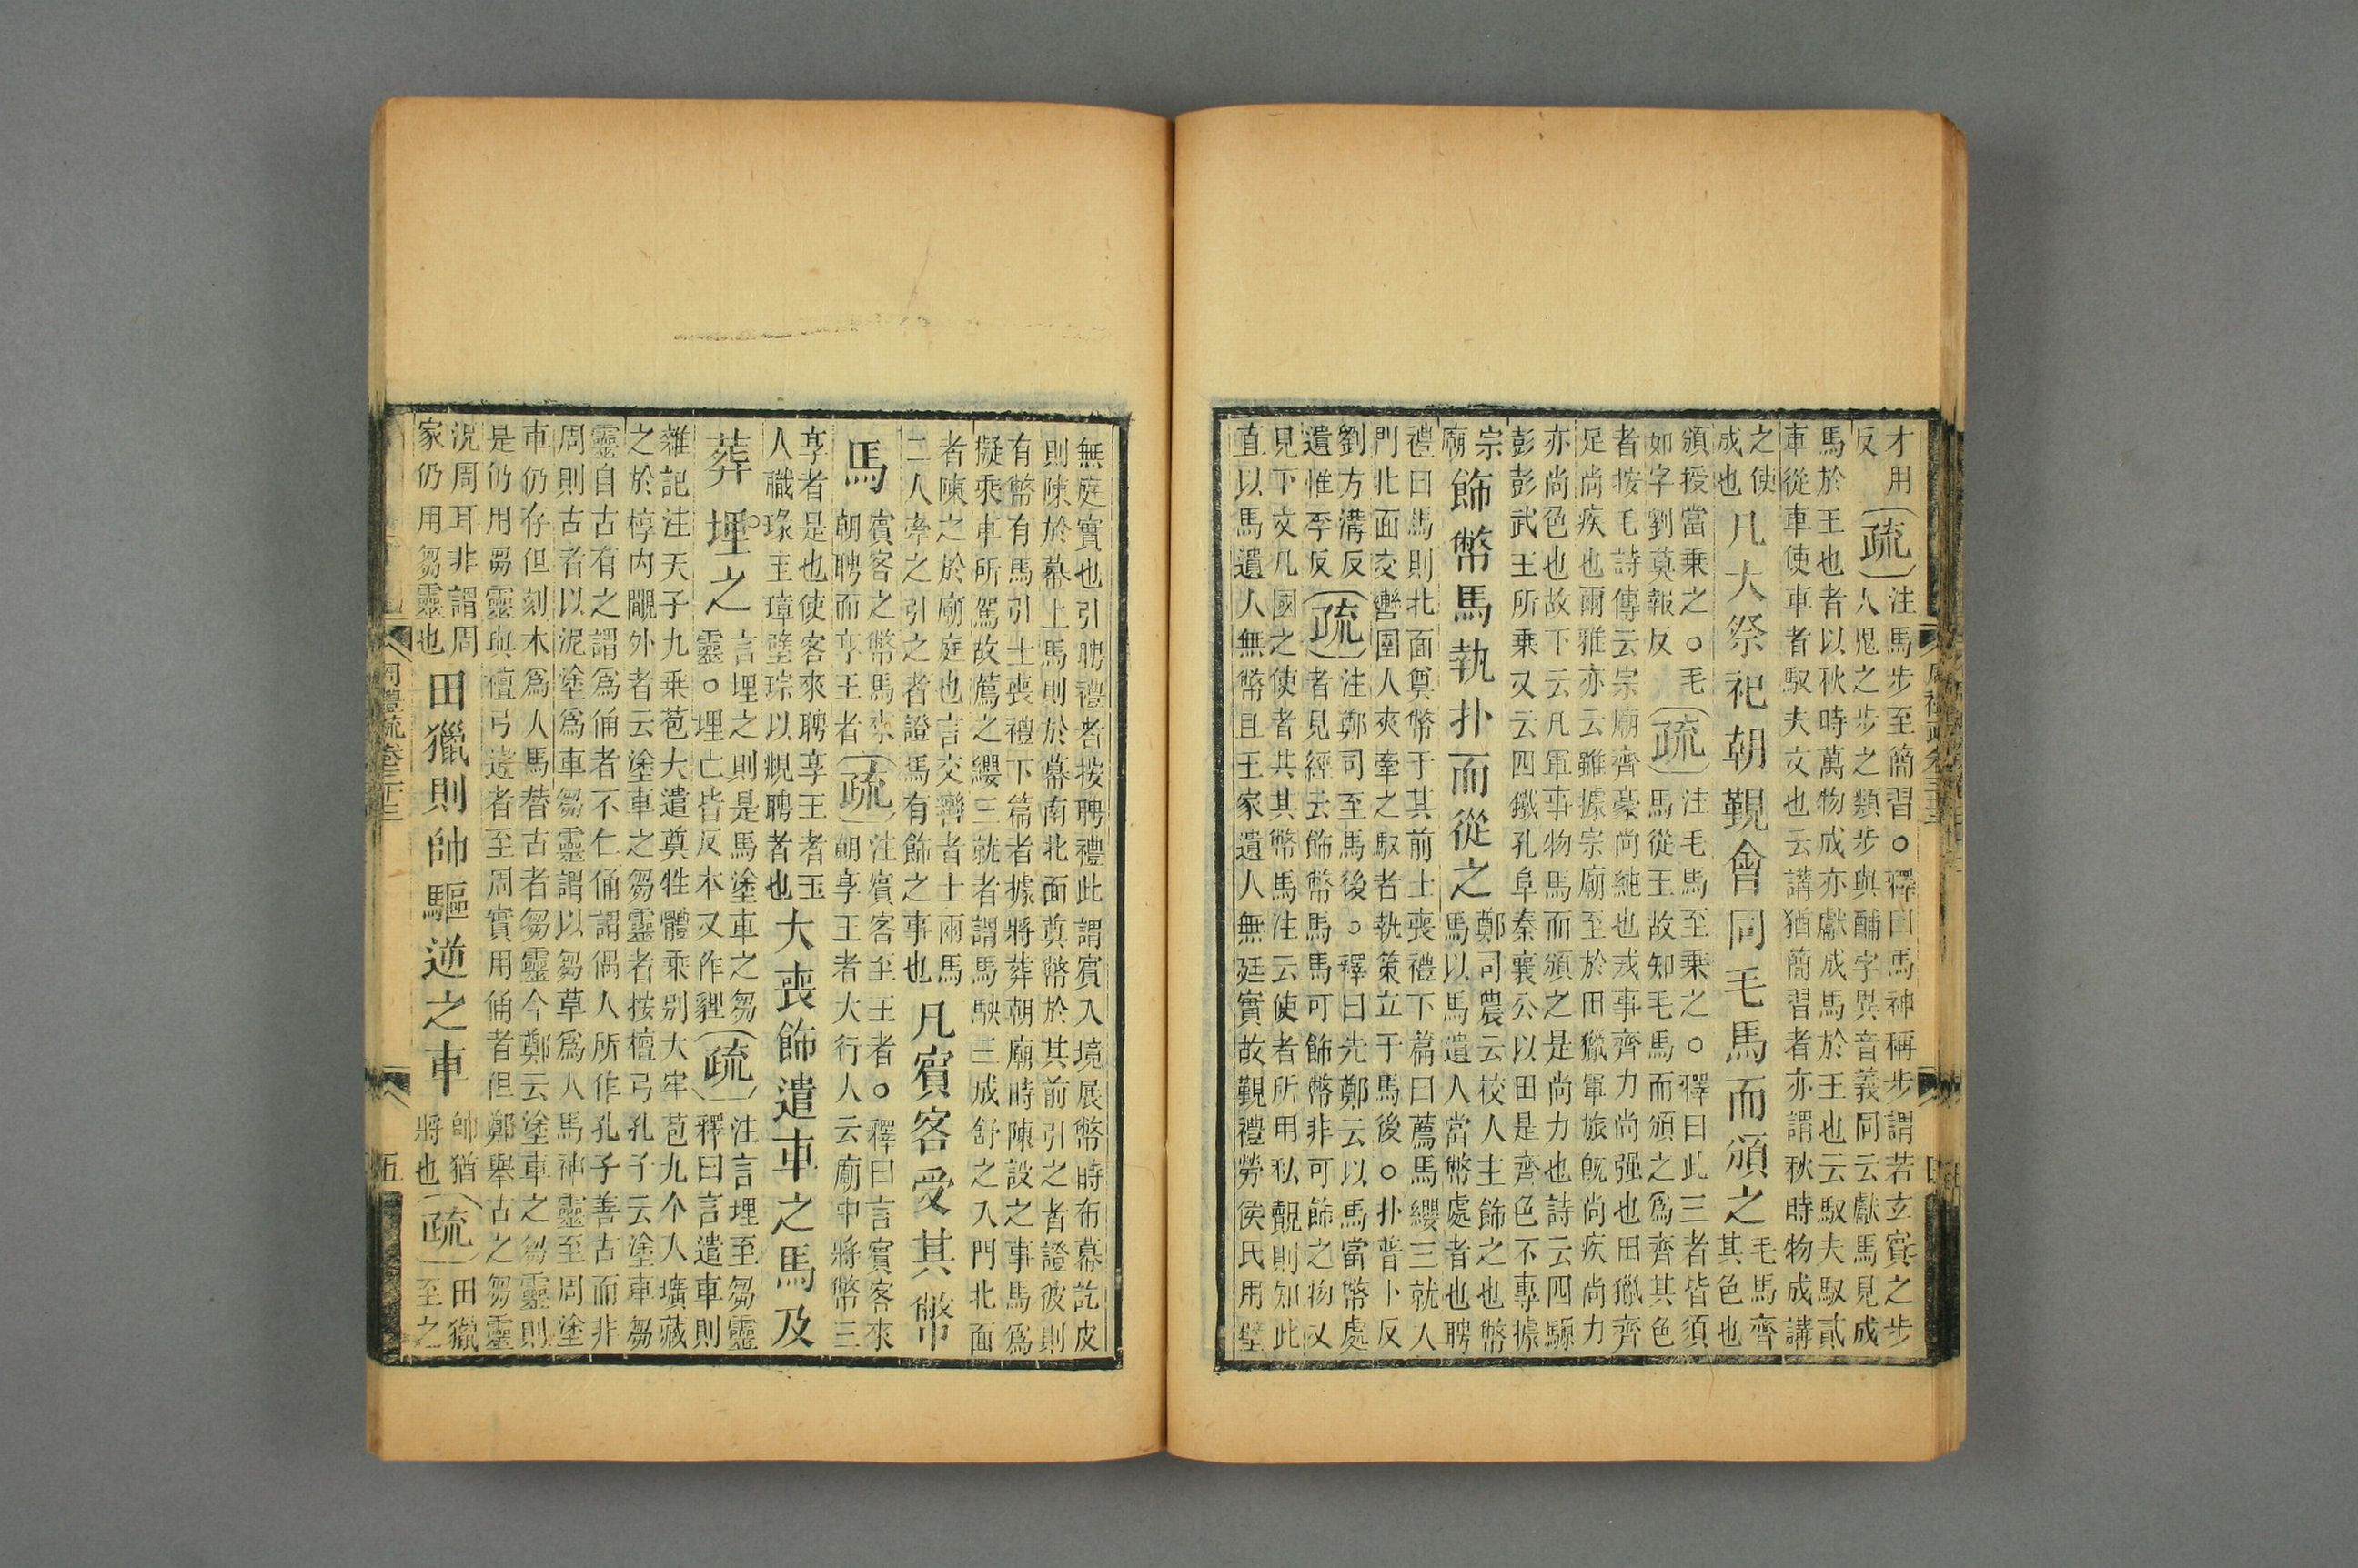 才用
反
疏
注馬步至簡習○釋曰馬神稱步謂若玄冥之步
人鬼之步之類步與酺字異音義同云獻馬見成
馬於王也者以秋時萬物成亦獻成馬於王也云馭夫馭貳
車從車使車者馭夫文也云講猶簡習者亦謂秋時物成講
之使
成也
凡大祭祀朝覲會同毛馬而頒之
毛馬齊
其色也
頒授當乘之○毛
如字劉莫報反
疏
注毛馬至乘之○釋曰此三者皆須
馬從王故知毛馬而頒之爲齊其色
者按毛詩傳云宗廟齊豪尚純也戎事齊力尚强也田獵齊
足尚疾也爾雅亦云雖據宗廟至於田獵軍旅旣尚疾尚力
亦尚色也故下云凡軍事物馬而頒之是尚力也詩云四騵
彭彭武王所乘又云四鐵孔阜秦襄公以田是齊色不專據
宗
廟
飾幣馬執扑而從之
鄭司農云校人主飾之也幣
馬以馬遺人當幣處者也聘
禮曰馬則北面奠幣于其前士喪禮下篇曰薦馬纓三就入
門北面交轡圉人夾牽之馭者執策立于馬後○扑普卜反
劉方溝反
遺惟季反
疏
注鄭司至馬後○釋曰先鄭云以馬當幣處
者見經云飾幣馬馬可飾幣非可飾之物又
見下文凡國之使者共其幣馬注云使者所用私覿則知此
直以馬遺人無幣且王家遺人無廷實故覲禮勞侯氏用璧
無庭實也引聘禮者按聘禮此謂賓入境展幣時布幕訖皮
則陳於幕上馬則於幕南北面奠幣於其前引之者證彼則
有幣有馬引士喪禮下篇者據將葬朝廟時陳設之事馬爲
擬乘車所駕故薦之纓三就者謂馬鞅三成舒之入門北面
者陳之於廟庭也言交轡者士兩馬
二人牽之引之者證馬有飾之事也
凡賓客受其幣
馬
賓客之幣馬來
朝聘而享王者
疏
注賓客至王者○釋曰言賓客來
朝享王者大行人云廟中將幣三
享者是也使客來聘享王者玉
人職瑑圭璋璧琮以覜聘者也
大喪飾遣車之馬及
葬埋之
言埋之則是馬塗車之芻
靈○埋亡皆反本又作貍
疏
注言埋至芻靈
釋曰言遣車則
雜記注天子九乘苞大遣奠牲體乘別大牢苞九个入壙藏
之於椁內覵外者云塗車之芻靈者按檀弓孔子云塗車芻
靈自古有之謂爲俑者不仁俑謂偶人所作孔子善古而非
周則古者以泥塗爲車芻靈謂以芻草爲人馬神靈至周塗
車仍存但刻木爲人馬替古者芻靈今鄭云塗車之芻靈則
是仍用芻靈與檀弓違者至周實用俑者但鄭舉古之芻靈
況周耳非謂周
家仍用芻靈也
田獵則帥驅逆之車
帥猶
將也
疏
田獵
至之
周禮疏卷三十三
五